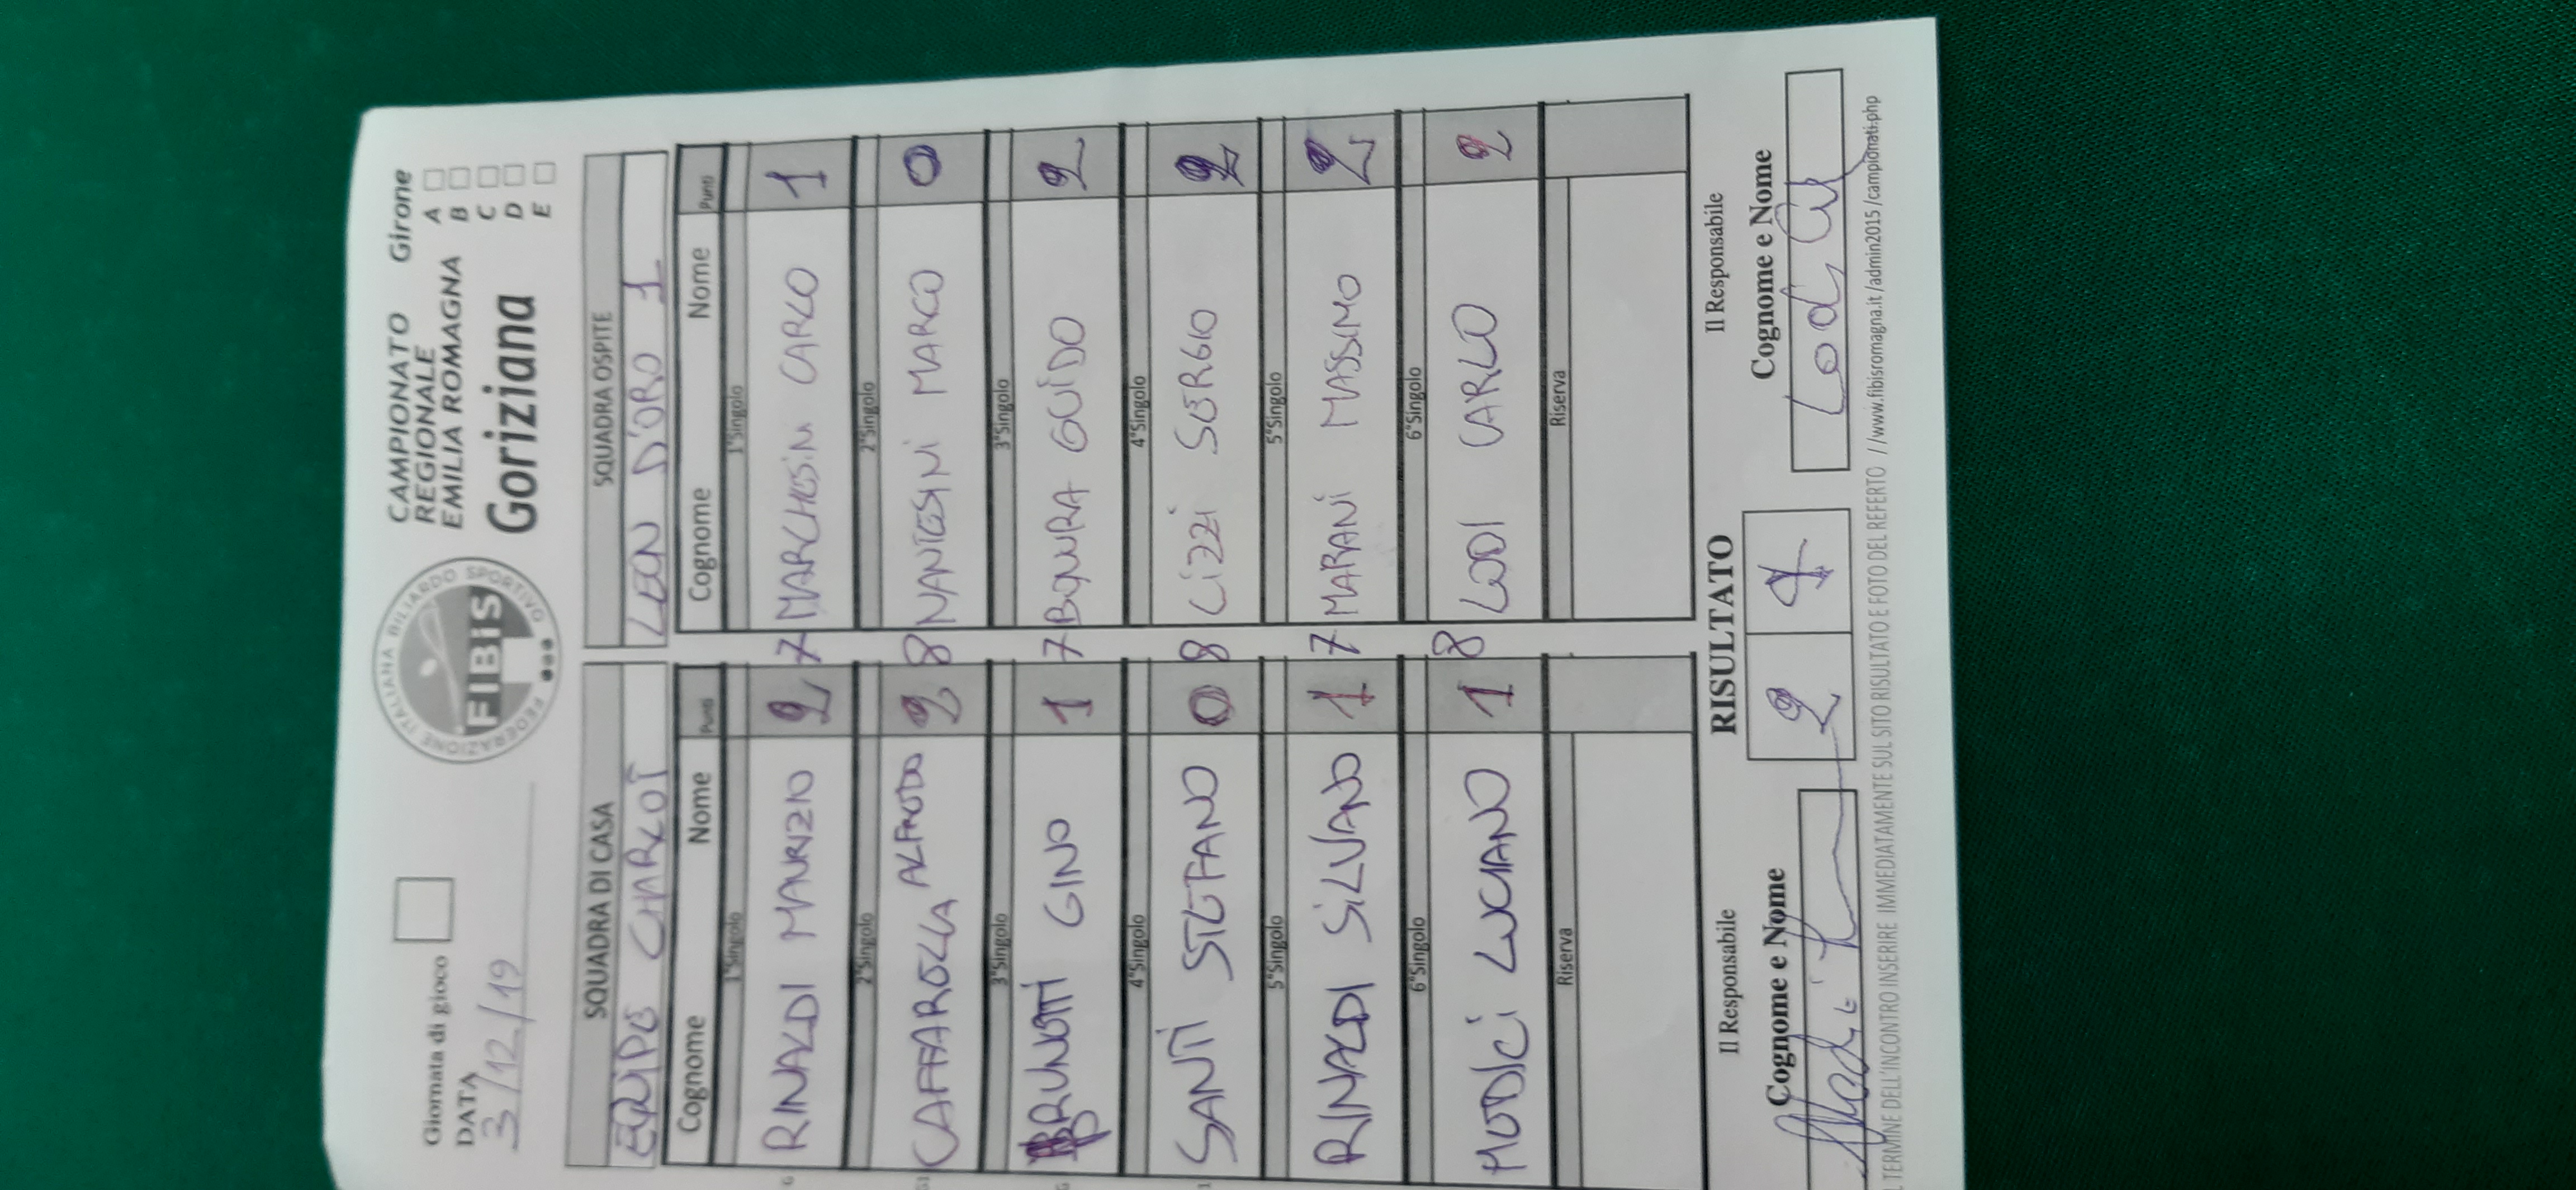 Giornata di gioco
DATA
3/12/19
FEDERAZIONE ITALIANA BILIARDO SPORTIVO
FIBiS
CAMPIONATO
REGIONALE
EMILIA ROMAGNA
Goriziana
Girone
A
B
C
D
E
SQUADRA DI CASA SQUADRA OSPITE
EQUIPE CHARLOT LEON D'ORO 1
Cognome Nome Punti Cognome Nome Punti
1°Singolo 1°Singolo
RINALDI MAURIZIO 2 7 MARCHESINI CARLO 1
2°Singolo 2°Singolo
CAFFARELLA ALFREDO 2 8 NANTESINI MARCO 0
3°Singolo 3°Singolo
BRUNETTI GINO 1 7 GUIDO 2
4°Singolo 4°Singolo
SANTI STEFANO 0 8 LIZZI SERGIO 2
5°Singolo 5°Singolo
RINALDI SILVANO 1 7 MARANI MASSIMO 2
6°Singolo 6°Singolo
MEDICI LUCIANO 1 8 LODI CARLO 2
Riserva Riserva
Il Responsabile RISULTATO Il Responsabile
Cognome e Nome 2 4 Cognome e Nome
Lodi
TERMINE DELL'INCONTRO INSERIRE IMMEDIATAMENTE SUL SITO RISULTATO E FOTO DEL REFERTO //www.fibisromagna.it/admin2015/campionati.php